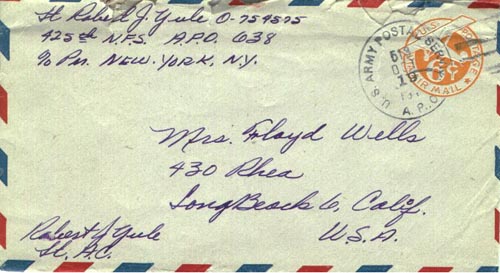 Lt Robert J. Yule O-754575
425th N.F.S. A.P.O. 638
℅ Pm. NEW. YORK, N.Y.
U.S. ARMY POSTAL SERVICE
19
A.P.O.
6¢
AIR MAIL
Mrs. Floyd Wells
430 Rhea
Long Beach 6, Calif.
U.S.A.
Robert J Yule
Lt. A.C.